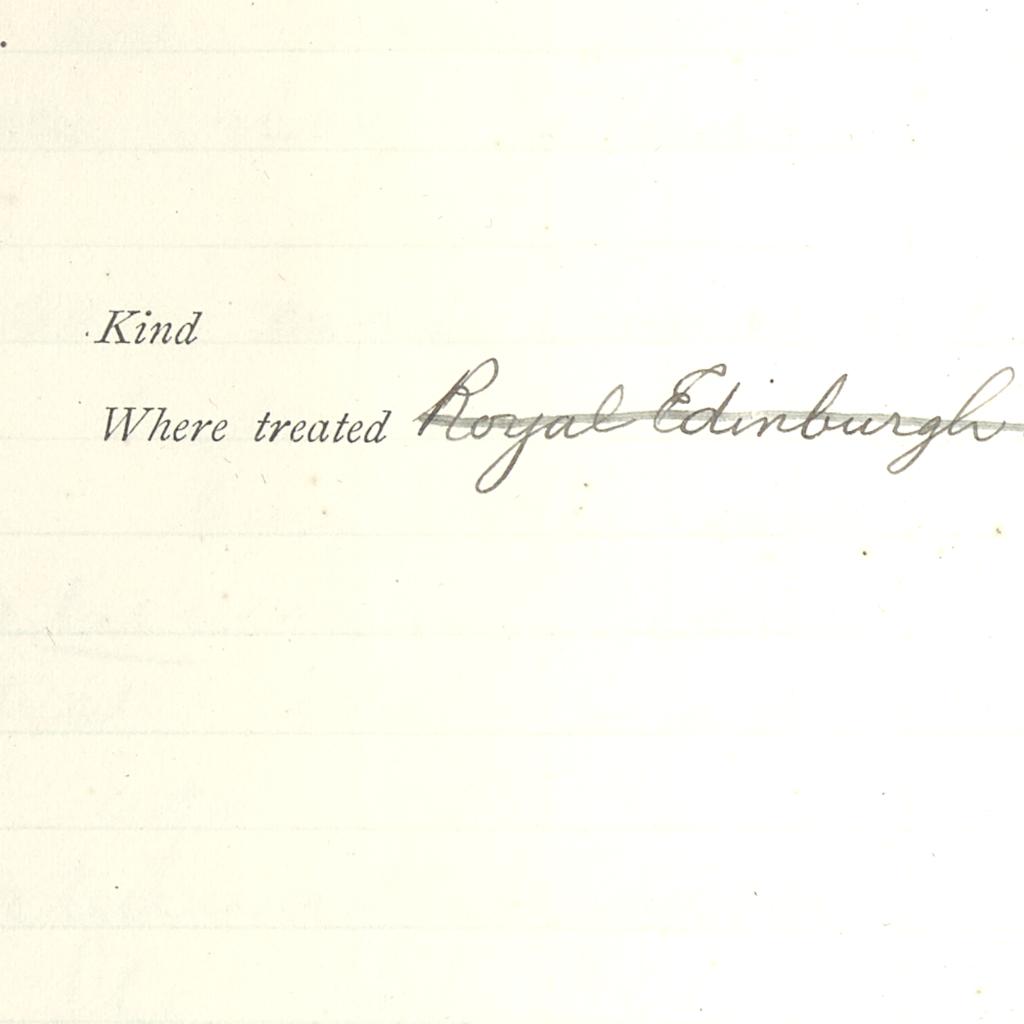 Kind
Where treated Royal Edinburgh